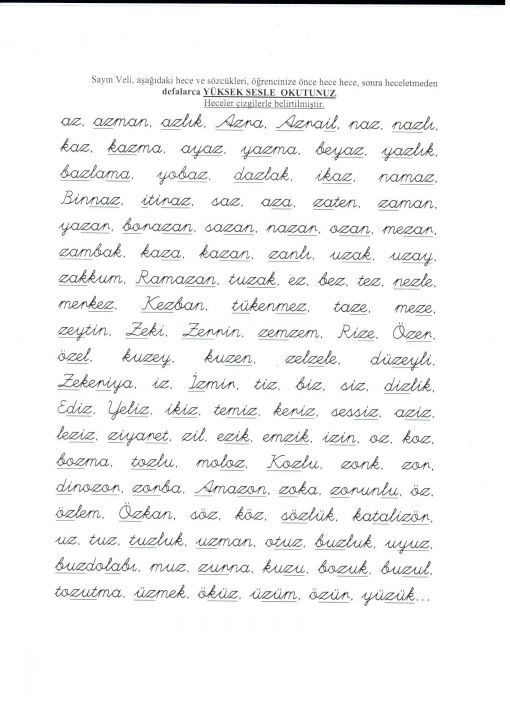 Sayın Veli, aşağıdaki hece ve sözcükleri, öğrencinize önce hece hece, sonra heceletmeden
defalarca YÜKSEK SESLE OKUTUNUZ
Heceler çizgilerle belirtilmiştir.
az, azman, azlık, Azra, Azrail, naz, nazlı,
kaz, kazma, ayaz, yazma, beyaz, yazlık,
bazlama, yobaz, dazlak, ikaz, namaz,
Binnaz, itiraz, saz, aza, zaten, zaman,
yazan, borazan, sazan, nazan, ozan, mezar,
zambak, kaza, kazan, zanlı, uzak, uzay,
zakkum, Ramazan, tuzak, ez, bez, tez, nezle,
merkez, Kezban, tükenmez, taze, meze,
zeytin, Zeki, Zerrin, zemzem, Rize, Özer,
özel, kuzey, kuzen, zelzele, düzeyli,
Zekeriya, iz, İzmir, tiz, biz, siz, dizlik,
Ediz, Yeliz, ikiz, temiz, keriz, sessiz, aziz,
leziz, ziyaret, zil, ezik, emzik, izin, oz, koz,
bozma, tozlu, moloz, Kozlu, zonk, zor,
dinozor, zorba, Amazon, zoka, zorunlu, öz,
özlem, Özkan, söz, köz, sözlük, katalizör,
uz, tuz, tuzluk, uzman, otuz, buzluk, uyuz,
buzdolabı, muz, zurna, kuzu, bozuk, buzul,
tozutma, üzmek, öküz, üzüm, özür, yüzük...